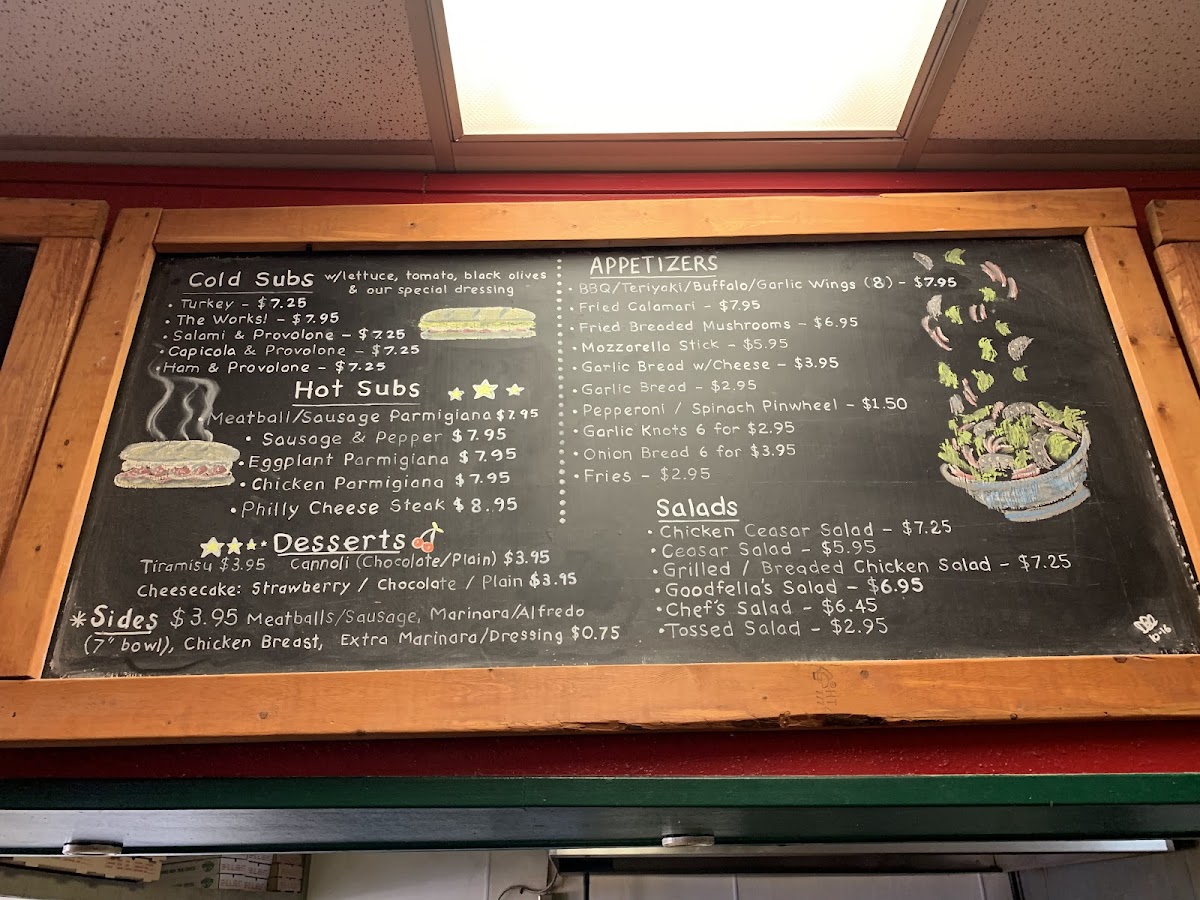 Cold Subs w/lettuce, tomato, black olives
& our special dressing
• Turkey - $7.25
• The Works! - $7.95
• Salami & Provolone - $7.25
• Capicola & Provolone - $7.25
• Ham & Provolone - $7.25
Hot Subs
Meatball/Sausage Parmigiana $7.95
• Sausage & Pepper $7.95
• Eggplant Parmigiana $7.95
• Chicken Parmigiana $7.95
• Philly Cheese Steak $8.95
Desserts
Tiramisu $3.95 Cannoli (Chocolate/Plain) $3.95
Cheesecake: Strawberry / Chocolate / Plain $3.95
*Sides $3.95 Meatballs/Sausage, Marinara/Alfredo
(7" bowl), Chicken Breast, Extra Marinara/Dressing $0.75
APPETIZERS
• BBQ/Teriyaki/Buffalo/Garlic Wings (8) - $7.95
• Fried Calamari - $7.95
• Fried Breaded Mushrooms - $6.95
• Mozzarella Stick - $5.95
• Garlic Bread w/Cheese - $3.95
• Garlic Bread - $2.95
• Pepperoni / Spinach Pinwheel - $1.50
• Garlic Knots 6 for $2.95
• Onion Bread 6 for $3.95
• Fries - $2.95
Salads
• Chicken Ceasar Salad - $7.25
• Ceasar Salad - $5.95
• Grilled / Breaded Chicken Salad - $7.25
• Goodfella's Salad - $6.95
• Chef's Salad - $6.45
• Tossed Salad - $2.95
10-16